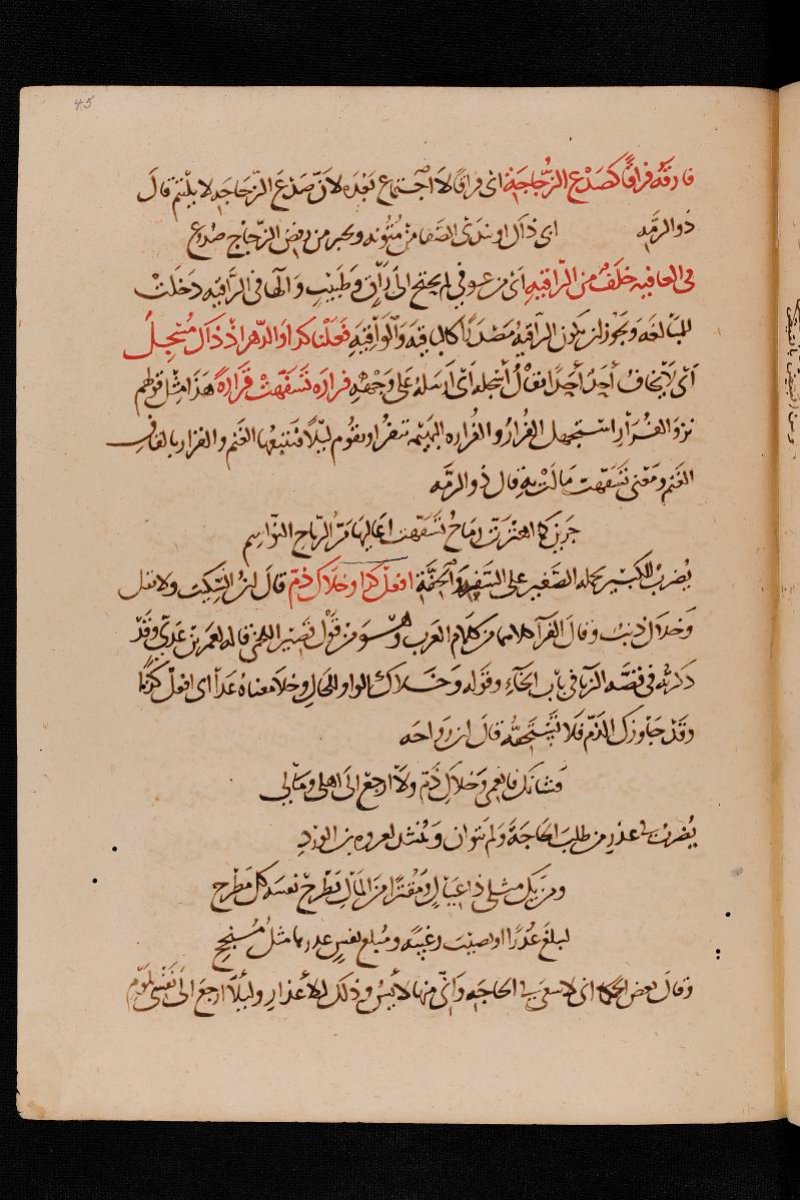 45
فارقه فراقًا كصدع الزجاجة اى فراقا لا اجتماع بعده لان صدع الزجاجه لا يلتئم قال
ذو الرمه اى ذاك او يندى الصفا من متونه ويجبر من رفض الزجاج صدوع
فى العافيه خلف من الراقيه اى من عوفى لم يحتج الى راق وطبيب والهاء فى الراقيه دخلت
للمبالغه ويجوز ان يكون الراقية مصدرًا كالباقيه والواقيه فعلنا كذا والدهر اذ ذاك مسجل
اى لا يخاف احد احدا يقال اسجله اى ارسله على وجهه فرارة تسفهت قرارة هذا مثل قولهم
نزو الفرار استجهل الفرار والفراره البهيمه تنفر او تقوم ليلا فتتبعها الغنم والقرار بالقاف
الغنم ومعنى تسفهت مالت به قال ذو الرمه
جرين كما اهتزت رماح تسفهت اعاليها مر الرياح النواسم
يضرب للكبير يحمله الصغير على السفه والخفة افعل كذا وخلاك ذم قال ابن السكيت ولا تقل
وخلاك ذنب وقال الفراء كلاهما من كلام العرب وهو من قول قصير اللخمى قاله لعمرو بن عدى وقد
ذكرته فى قصه الزبا فى باب الخاء وقوله وخلاك الواو للحال وخلا معناه عدا اى افعل كذا
وقد جاوزك الذم فلا تستحقه قال ابن رواحه
فشانك فانعمى وخلاك ذم ولا ارجع الى اهلى ومالى
يضرب فى عذر من طلب الحاجة ولم يتوان وينشد لعروه بن الورد
ومن يك مثلى ذا عيال ومقترا من المال يطرح نفسه كل مطرح
ليبلغ عذرا او يصيب رغيبه ومبلغ نفس عذرها مثل منجح
وقال بعض الحكماء انى لاسعى فى الحاجه وانى منها لايس وذلك للاعذار ولئلا ارجع الى نفسى بلوم